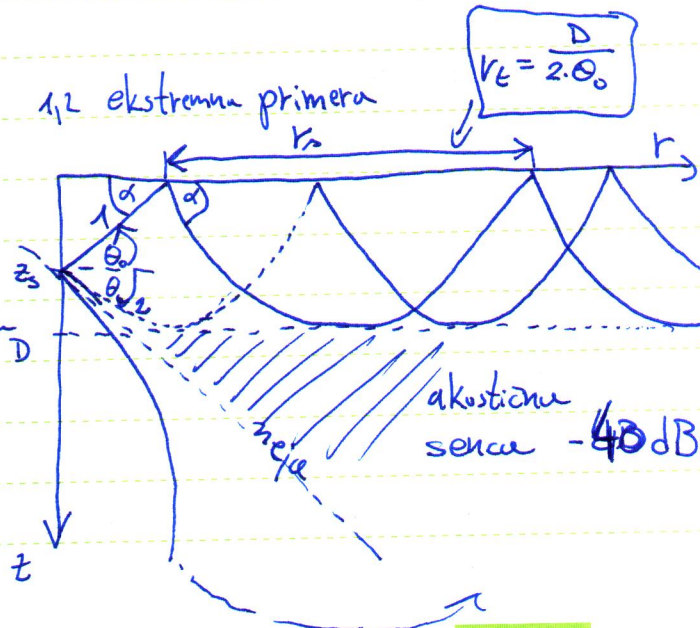 r_t = D / 2·Θ₀
1,2 ekstremna primera
r_s
r
α
α
1
Θ₀
z_s
Θ₀
2
D
akustična
senca -40 dB
meja
z